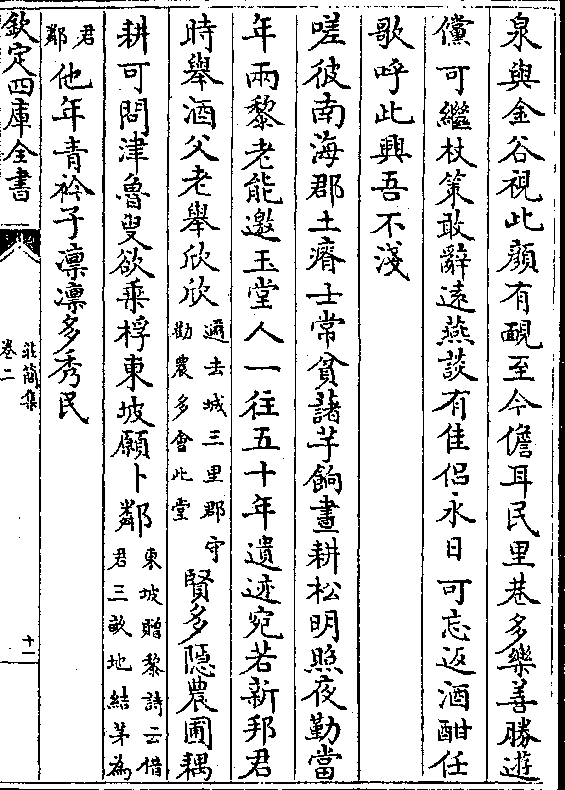 泉與金谷視此顔有靦至今儋耳民里巷多樂善勝遊
儻可繼杖策敢辭遠燕談有佳侣永日可忘返酒酣任
歌呼此興吾不淺
嗟彼南海郡土瘠士常貧藷芋餉晝耕松明照夜勤當
年兩黎老能邀玉堂人一往五十年遺迹宛若新邦君
時舉酒父老舉欣欣邇去城三里郡守勸農多會此堂賢多隱農圃耦
耕可問津魯叟欲乗桴東坡願卜鄰東坡贈黎詩云借君三畝地結茅為
君鄰他年青衿子凛凛多秀民
欽定四庫全書
莊簡集
卷二
十一